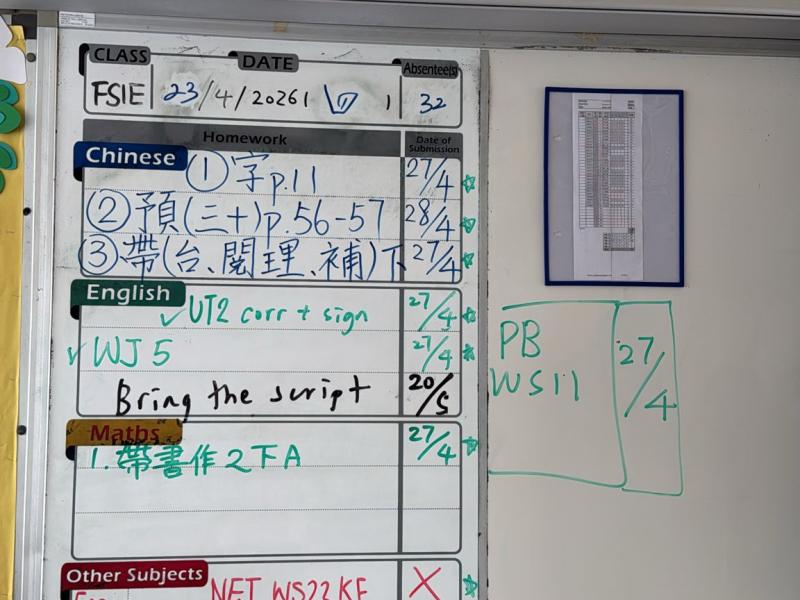 CLASS DATE Absentee(s)
FSIE 23/4/2026 32
Homework Date of Submission
Chinese
① 字 p.11 27/4
② 預(三十)p.56-57 28/4
③ 帶(台、閱理、補)下 27/4
English
✓ UT2 corr + sign 27/4
✓ WJ 5 27/4
Bring the script 20/5
Maths
1. 帶書作2下A 27/4
Other Subjects
NET WS22 KF X
PB 27/4
WS11